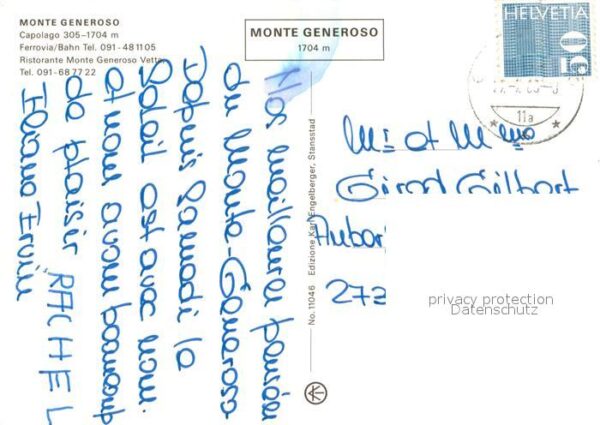 MONTE GENEROSO
Capolago 305–1704 m
Ferrovia/Bahn Tel. 091-48 11 05
Ristorante Monte Generoso Vetta
Tel. 091-68 77 22
MONTE GENEROSO
1704 m
HELVETIA
50
11a
Nos meilleures pensées
du Monte-Generoso
Depuis Samedi le
Soleil est avec nous
et nous avons beaucoup
de plaisir RACHEL
Eliane Erwin
No. 11046 Edizione Karl Engelberger, Stansstad
Mr et Mme
Girod Gilbert
Auber
272
privacy protection
Datenschutz